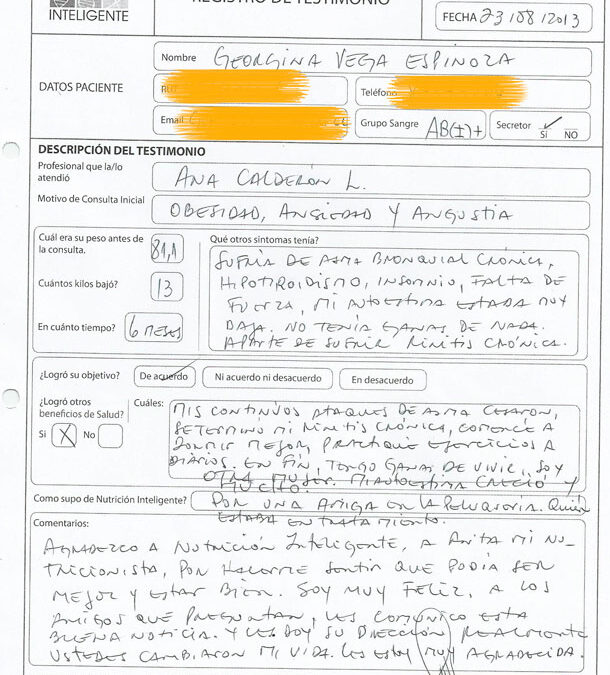 REGISTRO DE TESTIMONIO
INTELIGENTE
FECHA 23/08/2013
DATOS PACIENTE
Nombre GEORGINA VEGA ESPINOZA
Teléfono
Email
Grupo Sangre AB(±)+
Secretor Si NO
DESCRIPCIÓN DEL TESTIMONIO
Profesional que la/lo atendió
ANA CALDERÓN L.
Motivo de Consulta Inicial
OBESIDAD, ANSIEDAD Y ANGUSTIA
Cuál era su peso antes de la consulta.
81,1
Cuántos kilos bajó?
13
En cuánto tiempo?
6 MESES
Qué otros sintomas tenía?
SUFRÍA DE ASMA BRONQUIAL CRÓNICA,
HIPOTIROIDISMO, INSOMNIO, FALTA DE
FUERZA, MI AUTOESTIMA ESTABA MUY
BAJA. NO TENÍA GANAS DE NADA.
APARTE DE SUFRIR RINITIS CRÓNICA.
¿Logró su objetivo?
De acuerdo
Ni acuerdo ni desacuerdo
En desacuerdo
¿Logró otros beneficios de Salud?
Si X No
Cuáles:
MIS CONTINUOS ATAQUES DE ASMA CESARON,
SE TERMINO MI RINITIS CRÓNICA, COMENCE A
DORMIR MEJOR, PRACTIQUE EJERCICIOS A
DIARIOS. EN FIN, TENGO GANAS DE VIVIR, SOY
OTRA MUJER. MI AUTOESTIMA CRECIÓ Y
MUCHO.
Como supo de Nutrición Inteligente?
POR UNA AMIGA EN LA PELUQUERIA. QUIEN
ESTABA EN TRATAMIENTO.
Comentarios:
AGRADEZCO A NUTRICIÓN INTELIGENTE, A ANITA MI NU-
TRICIONISTA, POR HACERME SENTIR QUE PODÍA SER
MEJOR Y ESTAR BIEN. SOY MUY FELIZ, A LOS
AMIGOS QUE PREGUNTAN, LES COMUNICO ESTA
BUENA NOTICIA. Y LES DOY SU DIRECCIÓN REALMENTE
USTEDES CAMBIARON MI VIDA. LES ESTOY MUY AGRADECIDA.